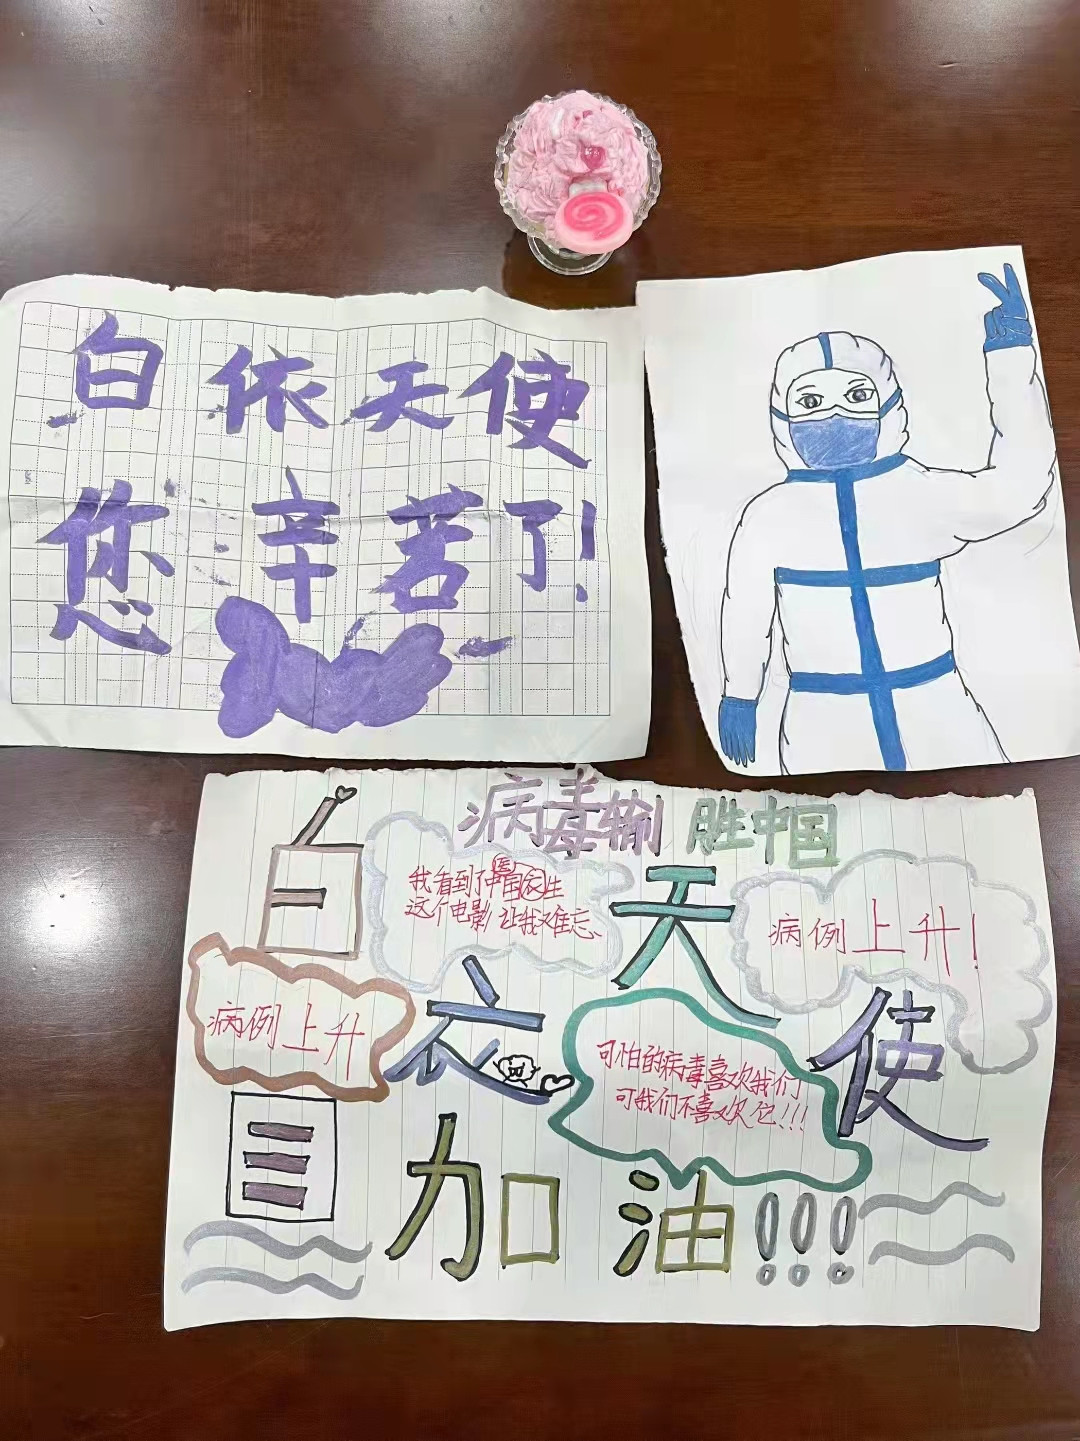 白依天使
您辛苦了!
病毒输 胜中国
白衣天使
我看到了中国医生
这个电影 让我难忘
病例上升!
病例上升
可怕的病毒喜欢我们
可我们不喜欢它!!!
加油!!!